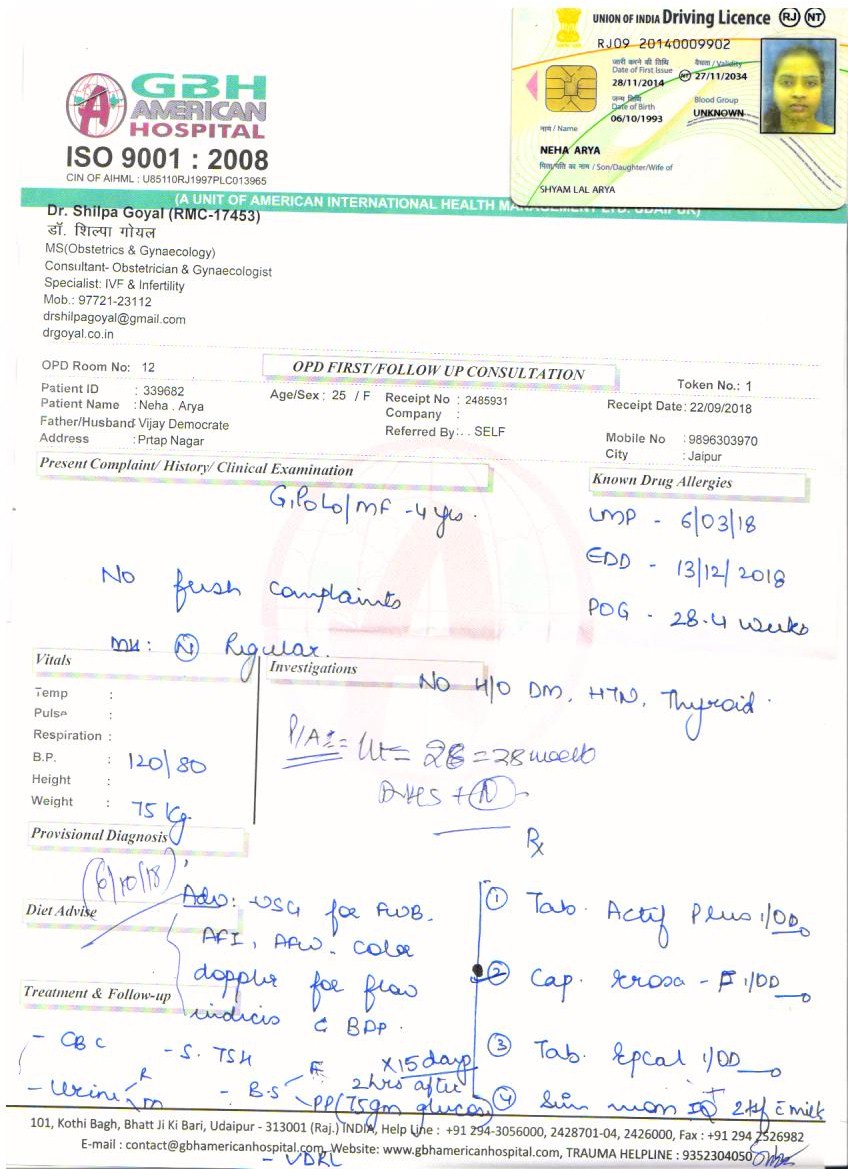 UNION OF INDIA Driving Licence RJ NT
RJ09 20140009902
जारी करने की तिथि
Date of First Issue
28/11/2014
वैधता / Validity
NT 27/11/2034
जन्म तिथि
Date of Birth
06/10/1993
Blood Group
UNKNOWN
नाम / Name
NEHA ARYA
पिता/पति का नाम / Son/Daughter/Wife of
SHYAM LAL ARYA
GBH
AMERICAN
HOSPITAL
ISO 9001 : 2008
CIN OF AIHML : U85110RJ1997PLC013965
(A UNIT OF AMERICAN INTERNATIONAL HEALTH MANAGEMENT LTD. UDAIPUR)
Dr. Shilpa Goyal (RMC-17453)
डॉ. शिल्पा गोयल
MS(Obstetrics & Gynaecology)
Consultant- Obstetrician & Gynaecologist
Specialist: IVF & Infertility
Mob.: 97721-23112
drshilpagoyal@gmail.com
drgoyal.co.in
OPD Room No: 12
OPD FIRST/FOLLOW UP CONSULTATION
Token No.: 1
Patient ID : 339682
Age/Sex : 25 / F
Receipt No : 2485931
Receipt Date: 22/09/2018
Patient Name : Neha . Arya
Company :
Father/Husband: Vijay Democrate
Referred By: . . SELF
Mobile No : 9896303970
Address : Prtap Nagar
City : Jaipur
Present Complaint/ History/ Clinical Examination
Known Drug Allergies
G1P0L0/MF - 4 yrs.
LMP - 6/03/18
EDD - 13/12/2018
POG - 28.4 weeks
No fresh complaints
MH: N Regular.
Vitals
Investigations
No H/O DM, HTN, Thyroid.
Temp :
Pulse :
Respiration :
B.P. : 120/80
Height :
Weight : 75 Kg.
P/A = Ut = 28 = 28 weeks
+ N
Rx
Provisional Diagnosis
(6/10/18)
Diet Advise
Adv: USG for FWB,
AFI, AFW. Color
doppler for flow
indicis c BPP.
Treatment & Follow-up
- CBC
- S. TSH
- Urine R/M
- B.S F
PP (75gm glucose)
2 hrs after
- VDRL
1 Tab. Actif Plus 1/OD
2 Cap. - F 1/OD
3 Tab. Epcal 1/OD
X 15 days
4 mom 2tsf c milk
101, Kothi Bagh, Bhatt Ji Ki Bari, Udaipur - 313001 (Raj.) INDIA, Help Line : +91 294-3056000, 2428701-04, 2426000, Fax : +91 294 2526982
E-mail : contact@gbhamericanhospital.com, Website: www.gbhamericanhospital.com, TRAUMA HELPLINE : 9352304050